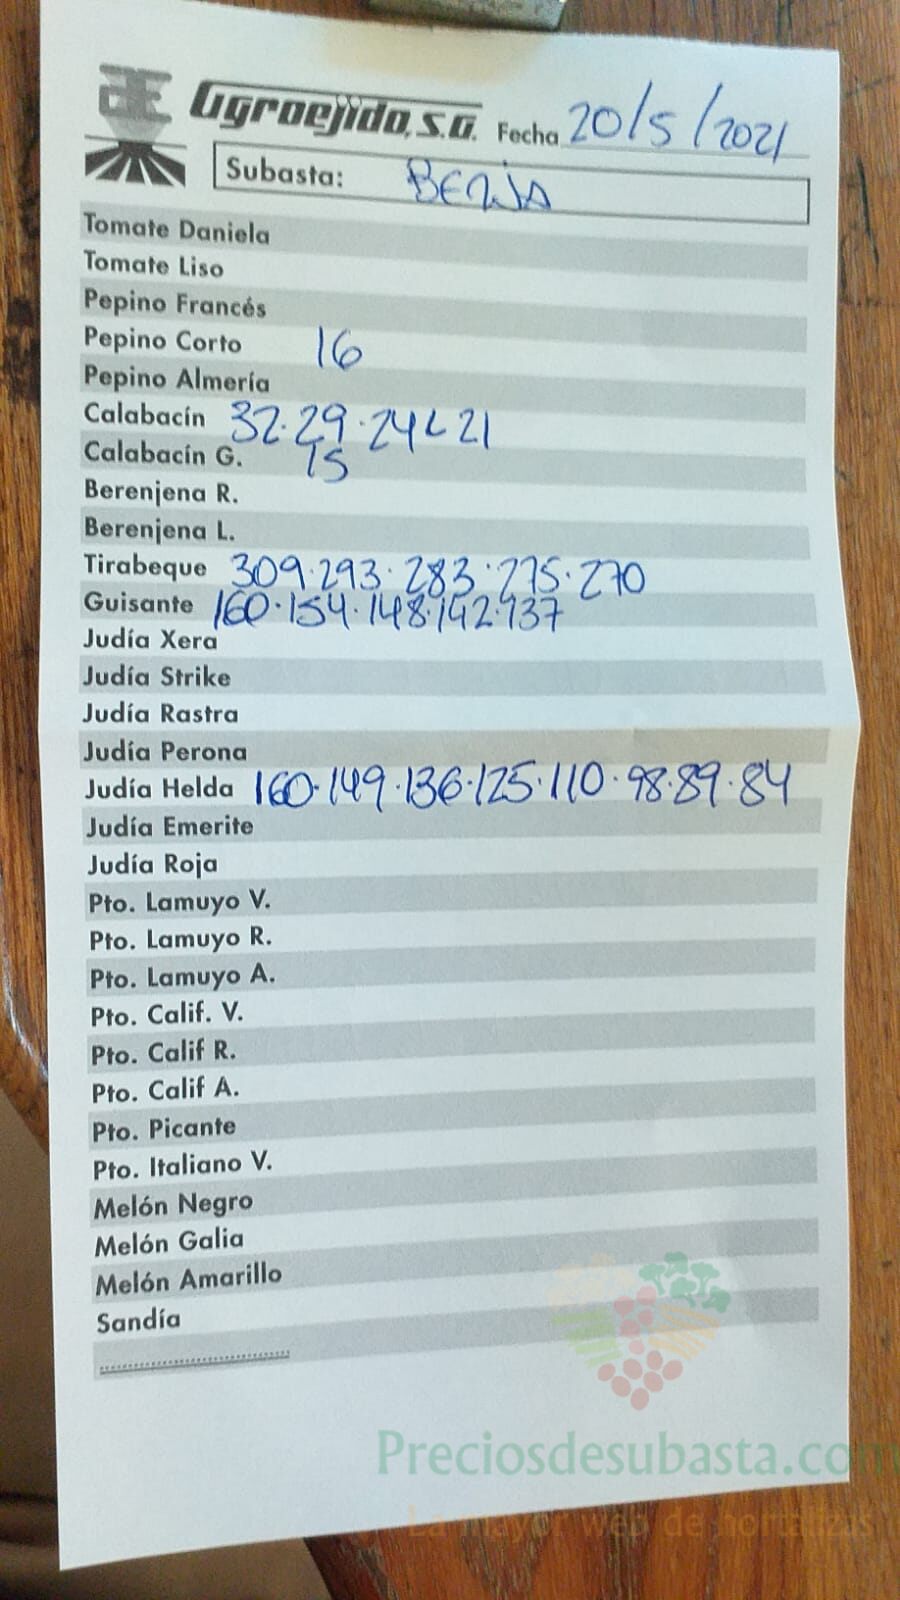 Agroejido, S.A. Fecha 20/5/2021
Subasta: BERJA
Tomate Daniela
Tomate Liso
Pepino Francés
Pepino Corto 16
Pepino Almería
Calabacín 32.29.24L21
Calabacín G. 15
Berenjena R.
Berenjena L.
Tirabeque 309.293.283.275.270
Guisante 160.154.148.142.137
Judía Xera
Judía Strike
Judía Rastra
Judía Perona
Judía Helda 160.149.136.125.110.98.89.84
Judía Emerite
Judía Roja
Pto. Lamuyo V.
Pto. Lamuyo R.
Pto. Lamuyo A.
Pto. Calif. V.
Pto. Calif R.
Pto. Calif A.
Pto. Picante
Pto. Italiano V.
Melón Negro
Melón Galia
Melón Amarillo
Sandía
Preciosdesubasta.com
La mayor web de hortalizas